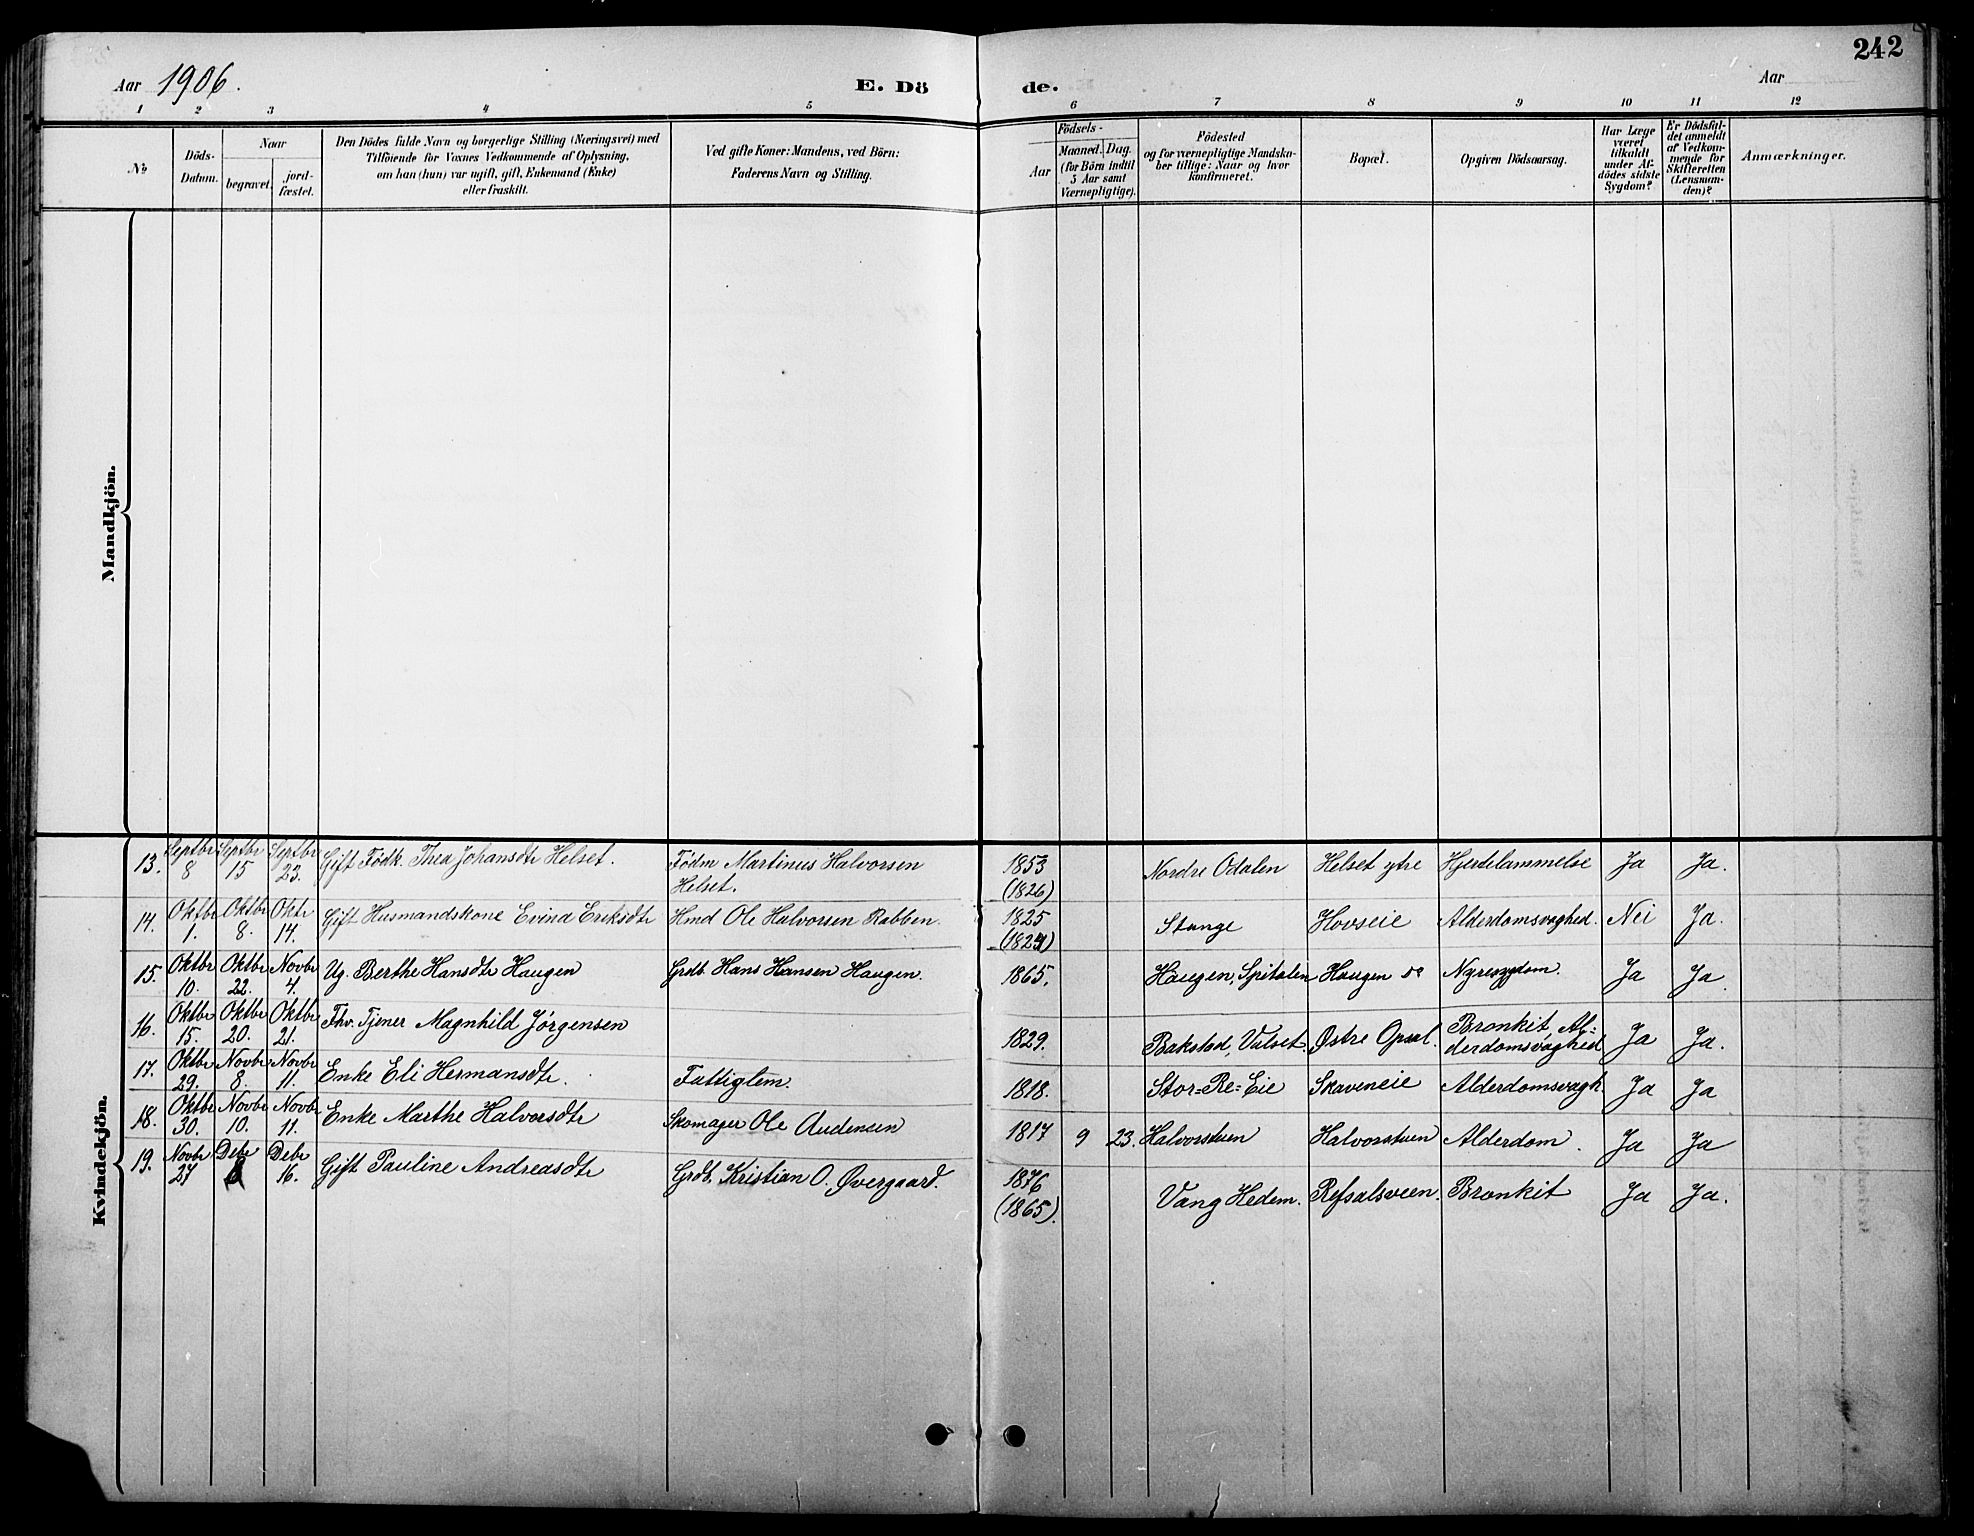 242
Aar 1906.
E. Dö
de.
Aar
1 2 3 4 5 6 7 8 9 10 11 12
No
Döds-
Datum.
Naar
begravet.
jord-
fæstet.
Den Dödes fulde Navn og borgerlige Stilling (Næringsvei) med
Tilföiende for Voxnes Vedkommende af Oplysning,
om han (hun) var ugift, gift, Enkemand (Enke)
eller fraskilt.
Ved gifte Koner: Mandens, ved Börn:
Faderens Navn og Stilling.
Födsels-
Aar
Maaned. Dag.
(for Börn indtil
5 Aar samt
Værnepligtige).
Födested
og for værnepligtige Mandska-
ber tillige: Naar og hvor
konfirmeret.
Bopæl.
Opgiven Dödsaarsag.
Har Læge
været
tilkaldt
under Af-
dödes sidste
Sygdom?
Er Dödsfal-
det anmeldt
af Vedkom-
mende for
Skifteretten
(Lensman-
den)?
Anmærkninger.
Mandkjön.
Kvindekjön.
13. Septbr 8 Septbr 15 Septbr 23. Gift Födk. Thea Johansdtr Helset. Födm Martinus Halvorsen Helset. 1853 (1826) Nordre Odalen Helset ytre Hjertelammelse Ja Ja.
14. Oktbr 1. Oktbr 8. Oktr 14. Gift Husmandskone Evina Eriksdtr Hmd Ole Halvorsen Rabben. 1825 (1824) Stange Hovseie Alderdomsvaghed. Nei Ja.
15. Oktbr 10. Oktbr 22. Novbr 4. Ug. Berthe Hansdtr Haugen Grdb. Hans Hansen Haugen. 1865. Haugen, Spitalen Haugen Nyresygdom. Ja Ja.
16. Oktbr 15. Oktbr 20. Oktbr 21. Fhv. Tjener Magnhild Jørgensen 1829. Bakstad, Valset. Østre Opsal. Bronkit, Al=derdomsvaghed Ja Ja.
17. Oktbr 29. Novbr 8. Novbr 11. Enke Eli Hermansdtr. Fattiglem. 1818. Stor=Re=Eie Skaveneie Alderdomsvagh. Ja Ja
18. Oktbr 30. Novbr 10. Novbr 11. Enke Marthe Halvorsdtr Skomager Ole Audensen 1817 9 23. Halvorstuen Halvorstuen Alderdom. Ja Ja
19. Novbr 27 Debr 8 Debr 16. Gift Pauline Andreasdtr Grdb. Kristian O. Øvergaard. 1876 (1865). Vang Hedem. Refsalsveen. Bronkit Ja Ja.